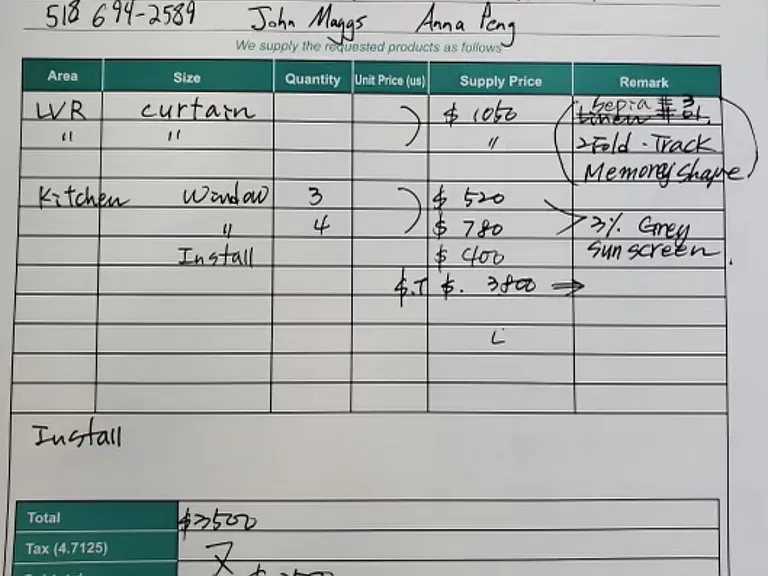 518 694-2589 John Maggs Anna Peng
We supply the requested products as follows
Area Size Quantity Unit Price (us) Supply Price Remark
LVR curtain $ 1050 Sepia # 3
" " " 2 Fold · Track
Memory Shape
Kitchen Window 3 $ 520
" 4 $ 780 3% Grey
Install $ 400 Sun screen.
$.T $. 3800 ⇒
Install
Total $3500
Tax (4.7125)